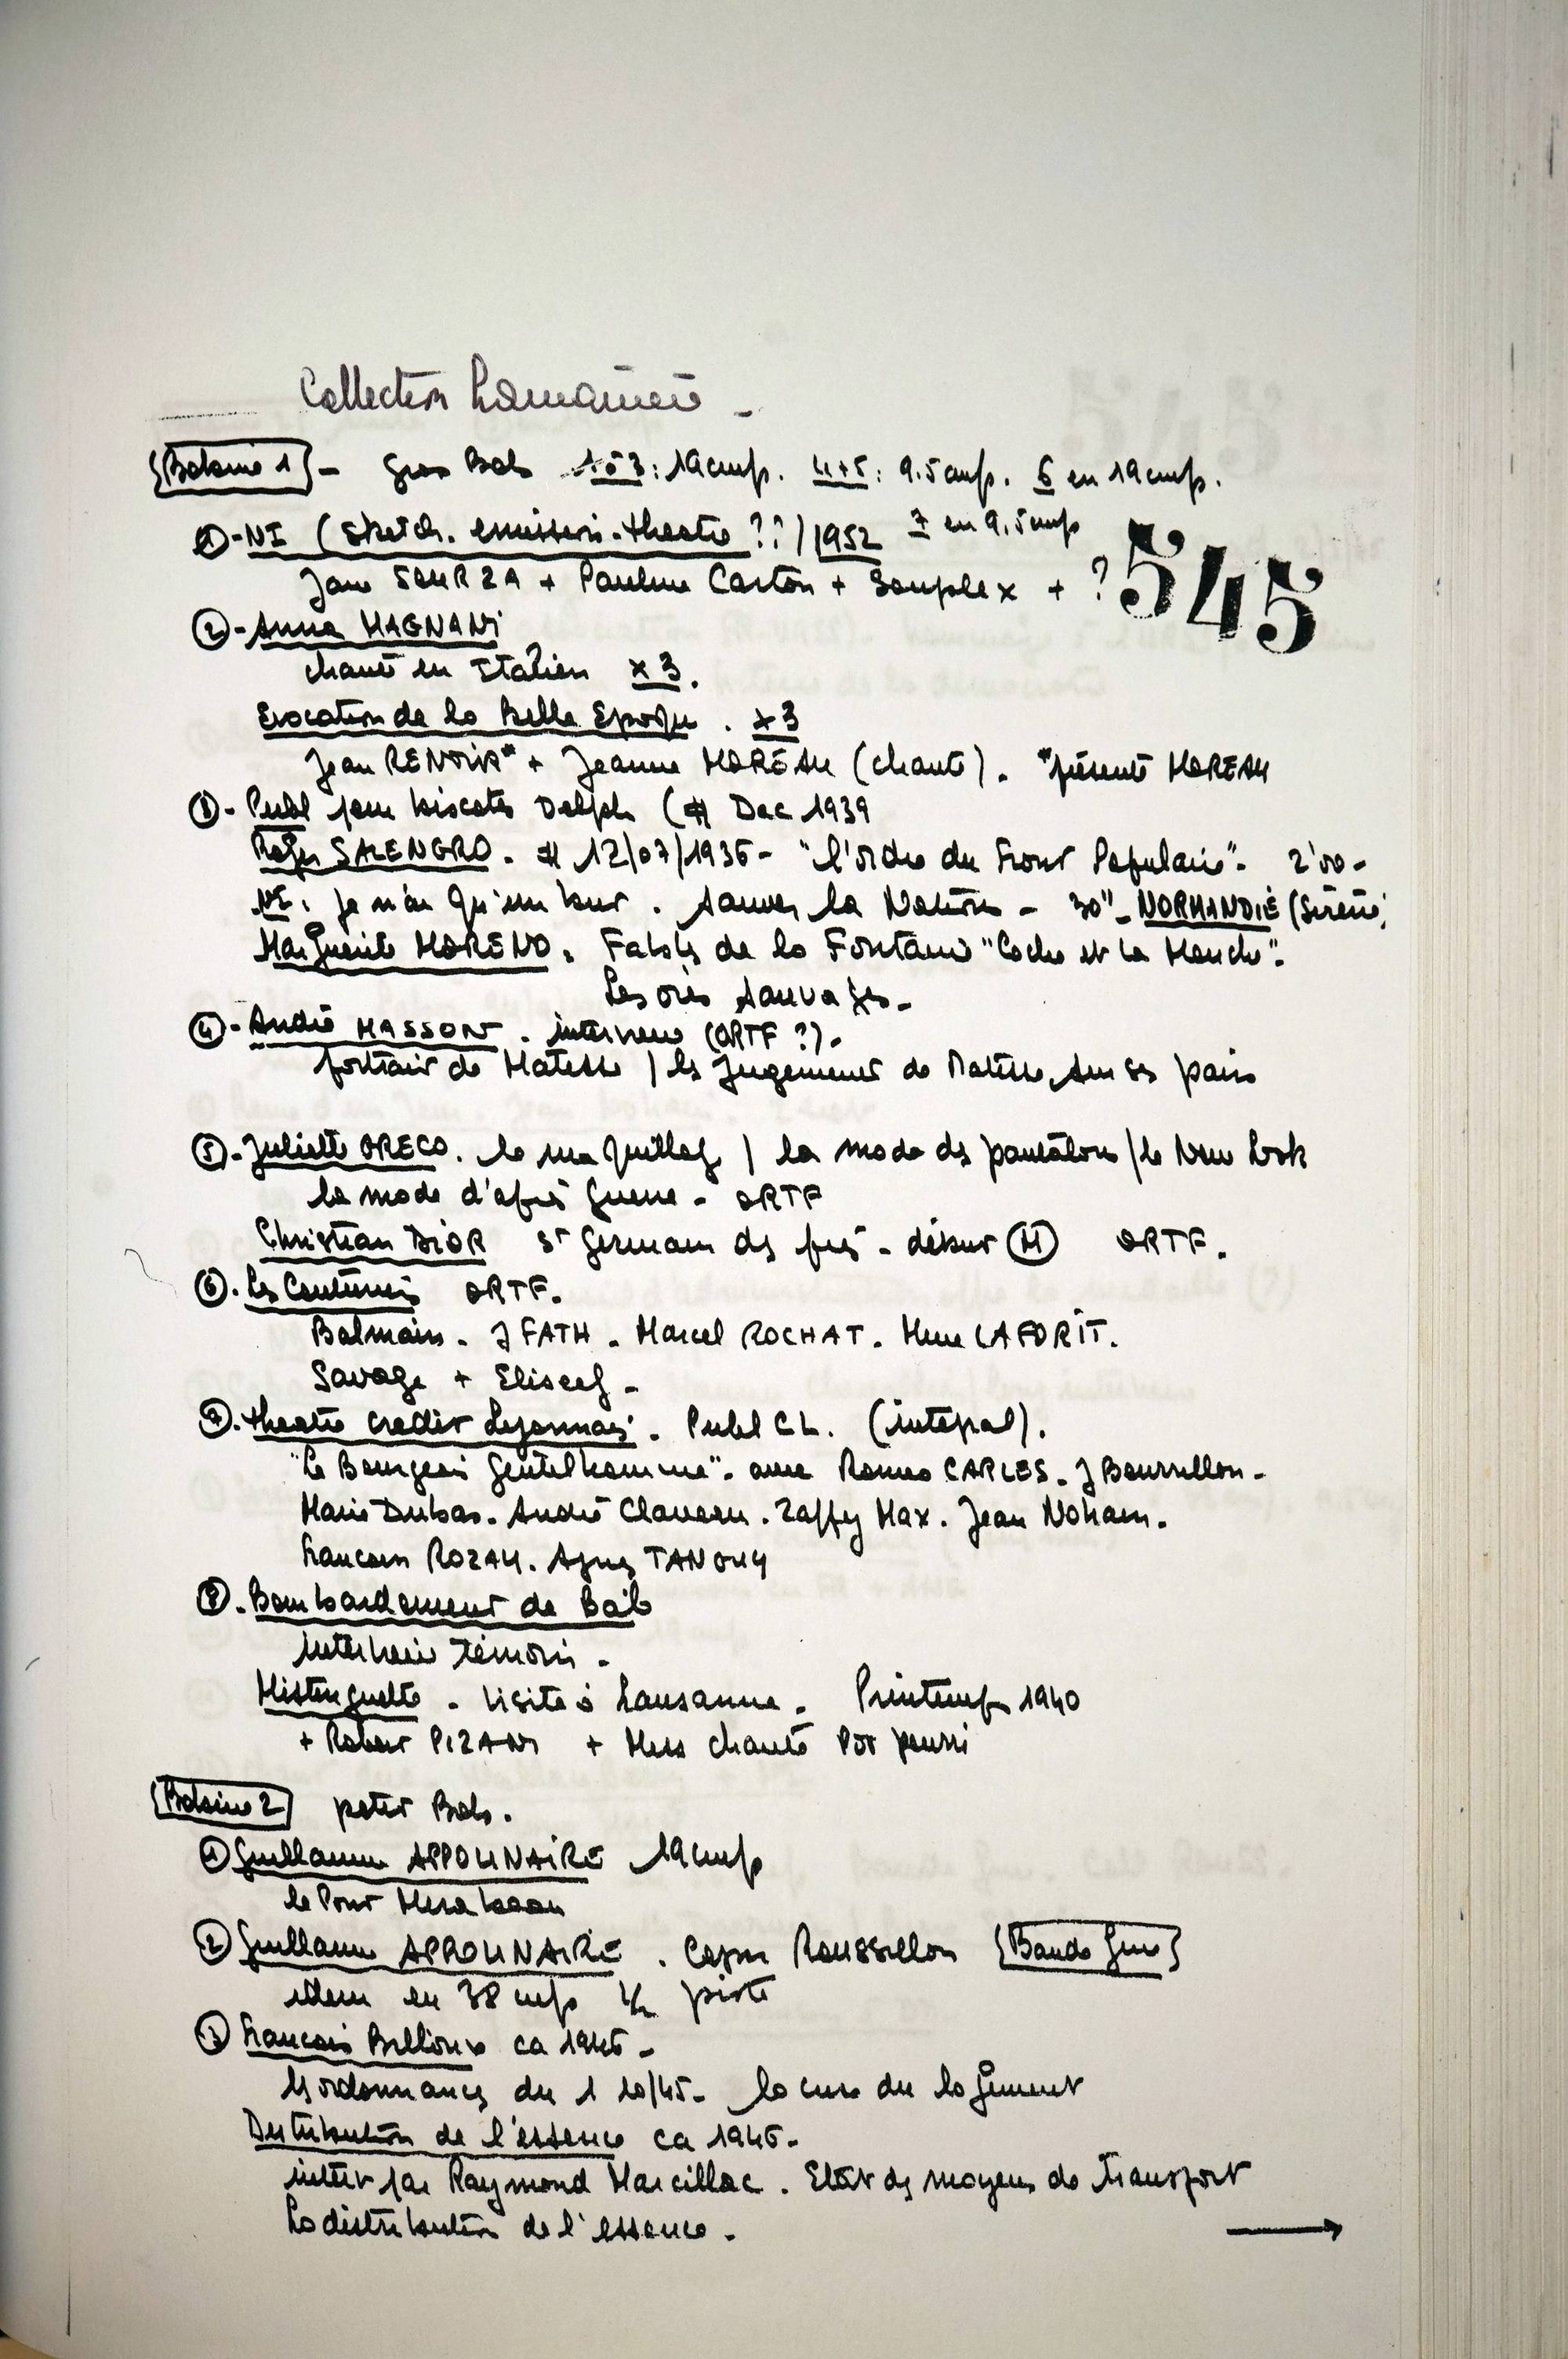 Collection
Bobine 1 - Gros Bob 1 à 3 : 19 cmps. 4+5 : 9.5 cmps. 6 en 19 cmps.
7 en 9,5 cmps
1 - NI (Sketch. emission. theatre ??) 1952
545
Jane SOURZA + Pauline Carton + Souplex + ?
2 - Anna MAGNANI
chante en Italien x 3.
Evocation de la Belle Epoque. x 3
Jean RENOIR* + Jeanne MOREAU (chante). *présente MOREAU
3 - Publ pour biscotes Delph (# Dec 1939
Roger SALENGRO. # 12/07/1936 - "l'ordre du Front Populaire". 2'00 -
NI. je n'ai qu'un but. Sauver la Nation - 30" - NORMANDIE (Sirène)
Marguerite MORENO. Fable de la Fontaine "Coche et la Mouche".
Les oies sauvages -
4 - André MASSON. interview (ORTF ?).
portrait de Matisse / les jugements de Matisse sur ses pairs
5 - Juliette GRECO. le maquillage / la mode des pantalons / le New Look
la mode d'après guerre - ORTF
Christian DIOR St Germain des prés - début (M) ORTF.
6. Les Couturiers ORTF.
Balmain. J FATH. Marcel ROCHAT. Mme LAFORIT.
Savage +
7. theatre credit Lyonnais. Publ CL. (integral).
"Le Bourgeois Gentilhomme". avec Romeo CARLES. J Bourrillon -
Marie Dubas. André Claveau. Zappy Max. Jean Nohain.
Francoise ROZAY. Agnes TANGUY
8. Bombardement de Bâle
interview témoin -
Mistinguette. Visite à Lausanne. Printemps 1940
+ Robert PIZANI + Miss chante Pot pourri
Bobine 2 petit Bob.
1 Guillaume APPOLINAIRE 19 cmps
le Pont Mirabeau
2 Guillaume APPOLINAIRE. Copie Roussillon Bande Gene
idem en 38 cmps 1/2 piste
3 Francois Billoux ca 1945 -
les ordonnances du 1 10/45 - la crise du logement
Distribution de l'essence ca 1945 -
interv par Raymond Marcillac. Etat des moyens de transport
La distribution de l'essence.